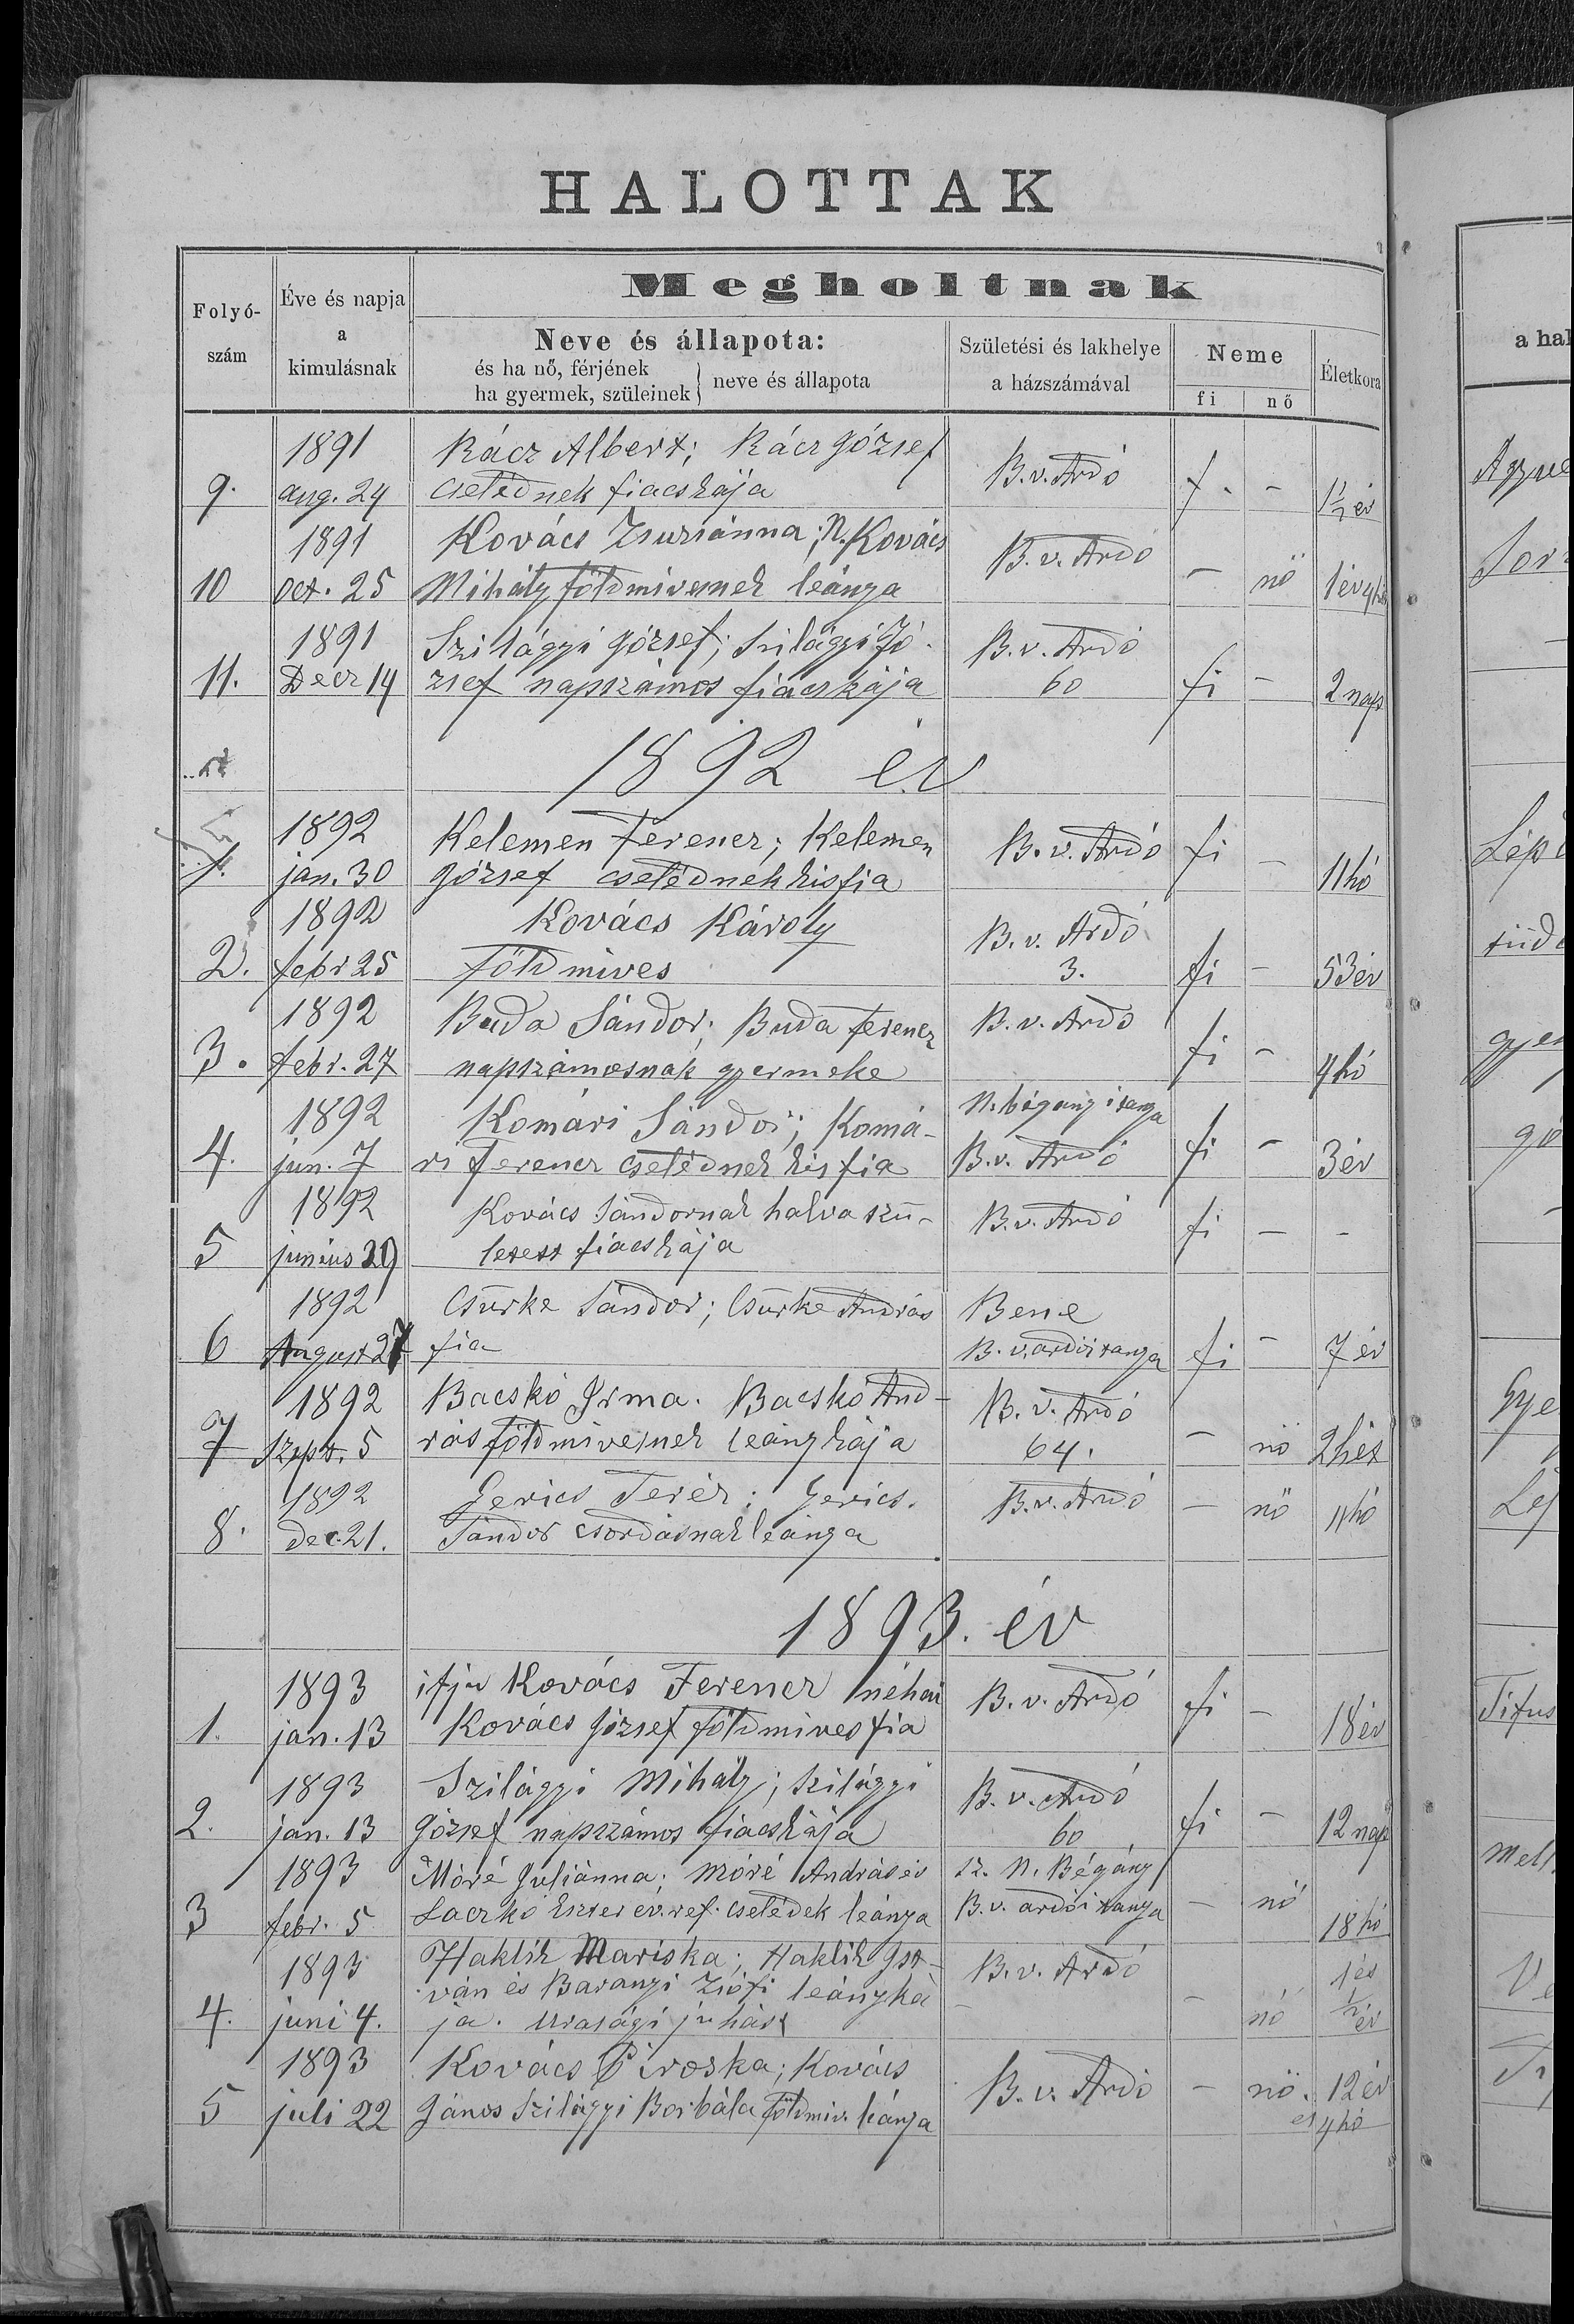 HALOTTAK
Folyó-
szám
Éve és napja
a
kimulásnak
Megholtnak
Neve és állapota:
és ha nő, férjének
ha gyermek, szüleinek
neve és állapota
Születési és lakhelye
a házszámával
Neme
fi
nő
Életkora
a hal
1891
Rácz Albert; Rácz József
B. v. Ardó
f. -
9.
aug. 24
cselédnek fiacskája
1 1/2 év
1891
Kovács Zsuzsánna; N. Kovács
B. v. Ardó
10
oct. 25
Mihály földmivesnek leánya
- nö
1 év 4 hó
1891
Szilágyi József; Szilágyi Jó-
B. v. Ardó
11.
Decz 14
zsef napszámos fiacskája
60
fi -
2 nap
1892 év
1892
Kelemen Ferencz; Kelemen
B. v. Ardó
fi -
1.
jan. 30
József cselédnek kisfia
11 hó
1892
Kovács Károly
B. v. Ardó
2.
febr 25
földmives
3.
fi -
53 év
1892
Buda Sándor; Buda Ferencz
B. v. Ardó
3.
febr. 27
napszámosnak gyermeke
fi -
4 hó
1892
Komári Sándor; Komá-
N. bégany i tanya
4.
jun. 7
ri Ferencz cselédnek kis fia
B. v. Ardó
fi -
3 év
1892
Kovács Sándornak halva szü-
B. v. Ardó
fi - -
5
junius 29
letett fiacskája
1892
Csürke Sándor; Csürke András
Bene
6
August 27
fia
B. v. ardói tanya
fi -
7 év
1892
Bacskó Irma. Bacskó And-
B. v. Ardó
7
Szept. 5
rás földmivesnek leánykája
64.
- nö
2 hét
1892
Gerics Teréz; Gerics
B. v. Ardó
- nö
11 hó
8.
dec. 21.
Sándor csordásnak leánya
1893. év
1893
ifju Kovács Ferencz néhai
B. v. Ardó
fi -
1.
jan. 13
Kovács József földmives fia
18 év
1893
Szilágyi Mihály; Szilágyi
B. v. Ardó
2.
jan. 13
József napszámos fiacskája
60
fi -
12 nap
1893
Móré Juliánna; Móré András és
sz. N. Bégány
3
febr. 5
Laczkó Eszter ev. ref. cselédek leánya
B. v. ardói tanya
- nö
18 hó
1893
Haklik Mariska; Haklik Ist-
B. v. Ardó
1 és
ván és Baranyi Zsófi leányká
4.
juni 4.
ja. Urasági juhász
- nö
1/2 év
1893
Kovács Piroska; Kovács
B. v. Ardó
- nö.
12 év
5
juli 22
János Szilágyi Borbála földmiv. leánya
és 4 hó